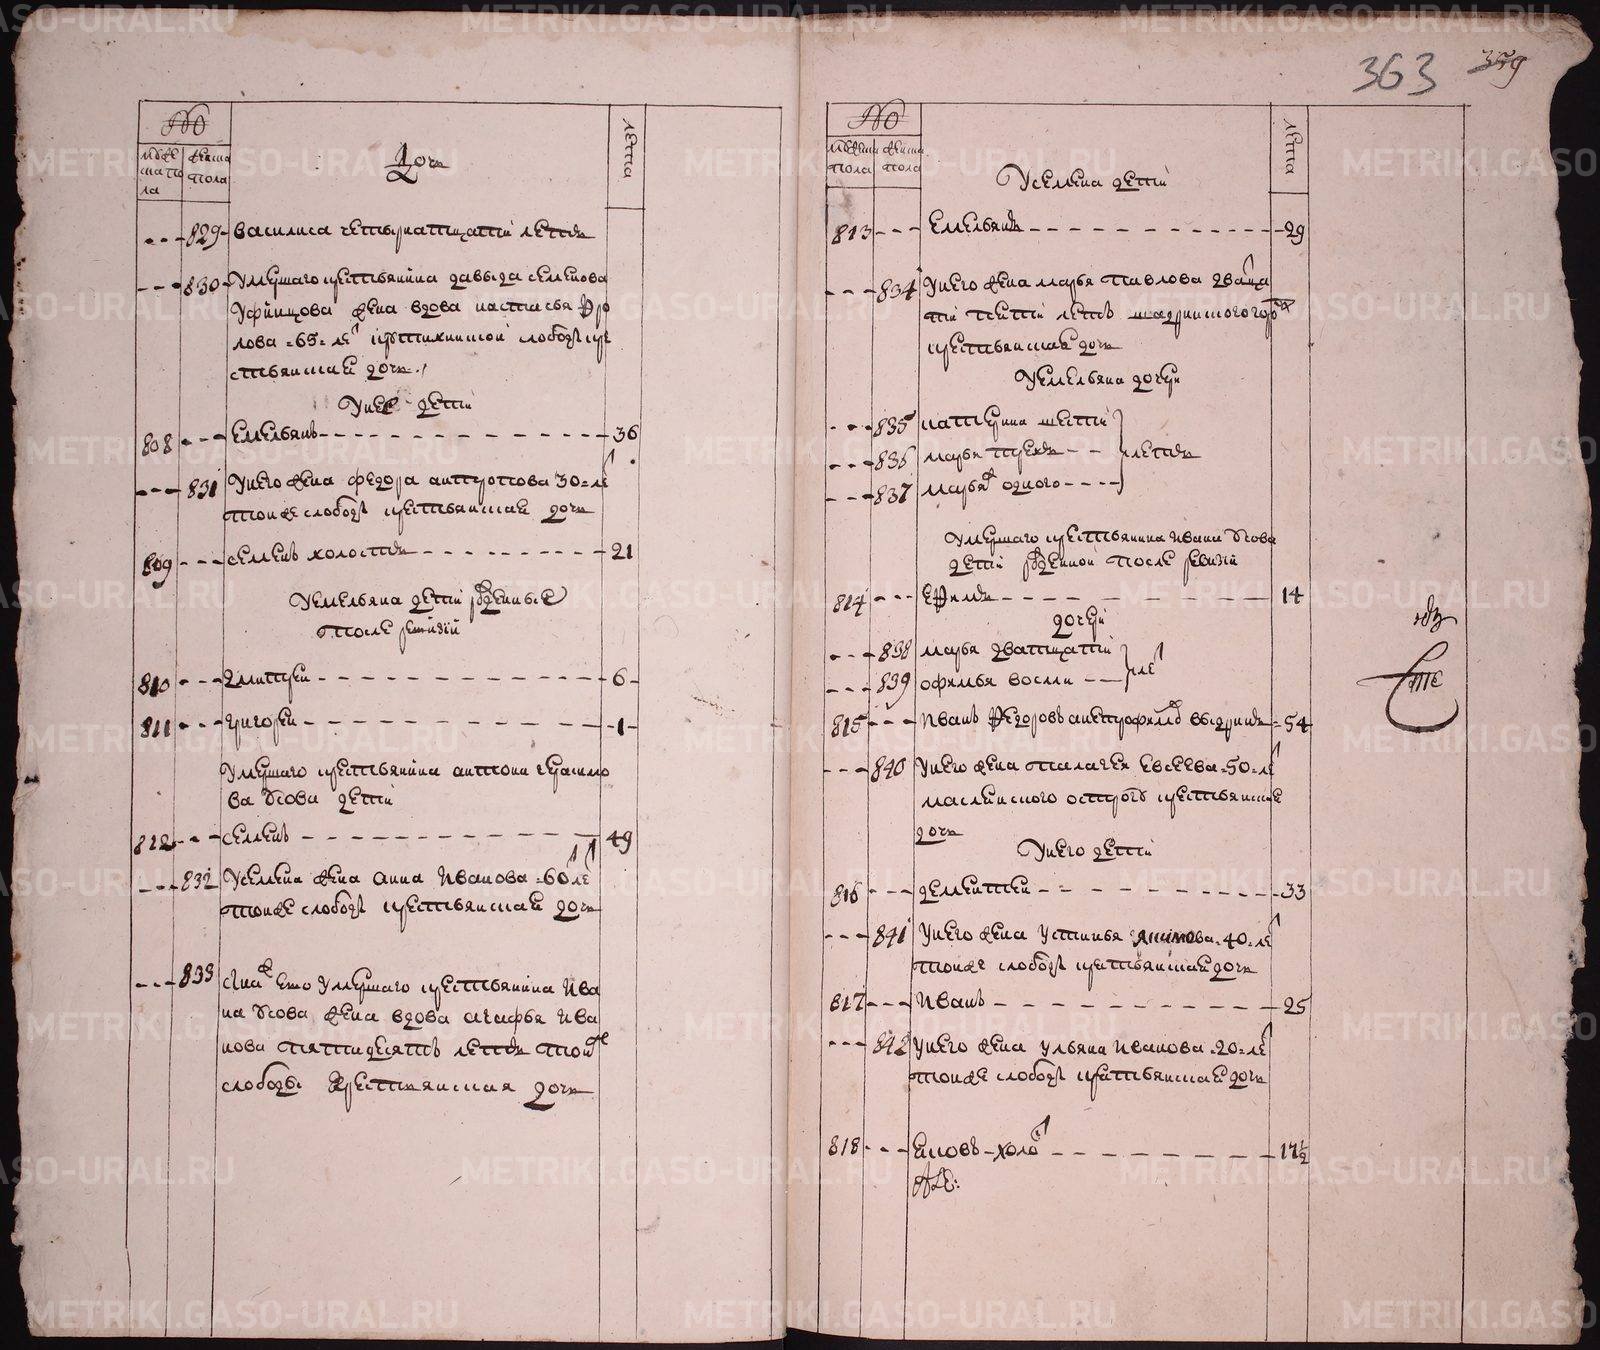 №
мꙋже
ска по
ла
женска
пола
дочь
лета
829 василиса четырнатцатїи летъ
830 Умершаго крестьянїна давыда семенова
Уфинцова жена вдова настасья Фро
лова 65 ле крꙋтихинской слободы кре
стьянская дочь
Унее детїи
808 Емельянъ 36
831 Унего жена федора антропова 30 ле
тоиже слободы крестьянская дочь
809 семенъ холостъ 21
Уемельяна детїи рожденные
после ревизїи
810 дмитреи 6
811 григореи 1
Умершаго крестьянїна антона герасимо
ва детїи
812 семенъ 49
832 Усемена жена анна Иванова 60 ле
тоиже слободы крестьянская дочь
833 Умершаго крестьянїна Ива
на жена вдова агафья Ива
нова пятидесятъ летъ тоиже
слободы крестиянская дочь
363
359
№
мꙋжеска
пола
женска
пола
лета
Усемена детїи
813 Емельянъ 29
834 Унего жена марья павлова дватца
ти летъ
крестьянская дочь
Уемельяна дочери
835 катерина шести
836 марья трехъ летъ
837 одного
Умершаго крестьянина Ивана
детїи рожденнои после ревизїи
814 Ефимъ 14
дочери
838 марья дватцатїи
839 офимья восми ле
815 Иванъ Федоровъ 54
840 Унего жена палагея Евсеева 50 ле
маслянского острогꙋ крестьянская
дочь
Унего детїи
816 дементеи 33
841 Унего жена устинья 40 ле
тоиже слободы крестьянская дочь
817 Иванъ 25
842 Унего жена ульяна Иванова 20 ле
тоиже слободы крестьянская дочь
818 Яковъ холо 17½
METRIKI.GASO-URAL.RU